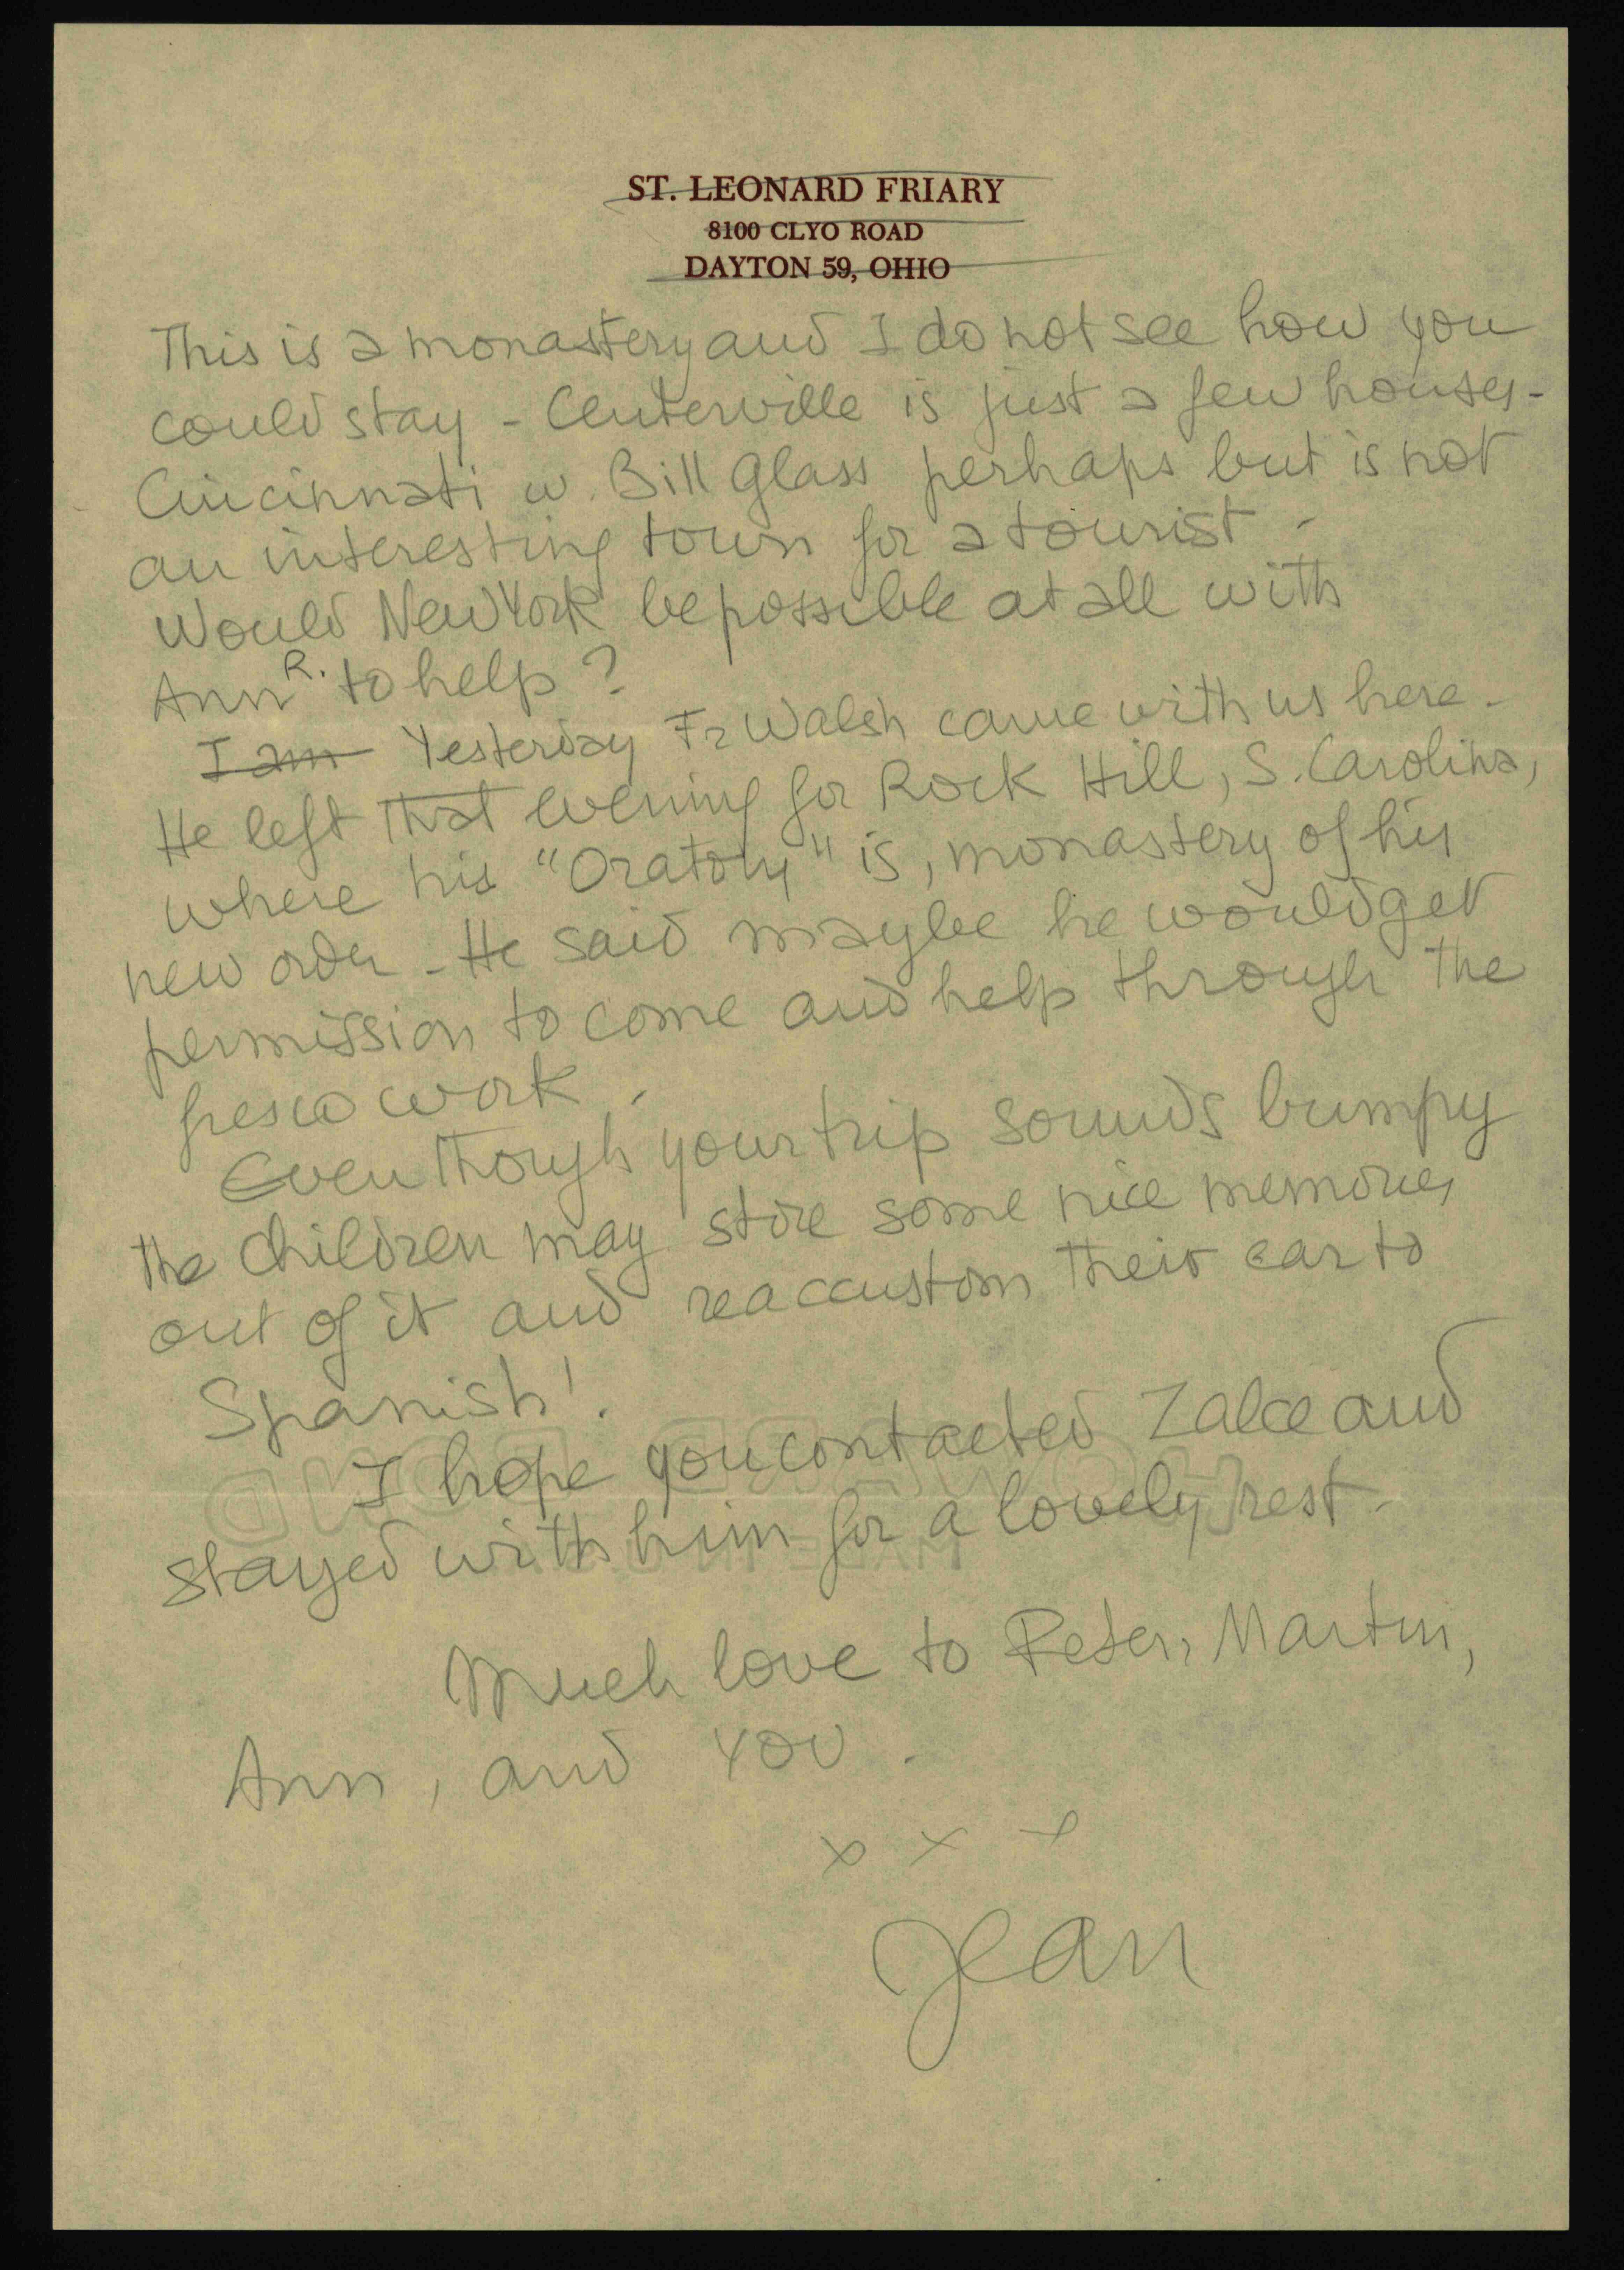 ST. LEONARD FRIARY
8100 CLYO ROAD
DAYTON 59, OHIO
This is a monastery and I do not see how you
could stay - Centerville is just a few houses -
Cincinnati w. Bill Glass perhaps but is not
an interesting town for a tourist -
Would New York be possible at all with
Ann R. to help?
I am Yesterday Fr Walsh came with us here -
He left that evening for Rock Hill, S. Carolina,
where his "Oratory" is, monastery of his
new order - He said maybe he would get
permission to come and help through the
fresco work.
Even though your trip sounds bumpy
the children may store some nice memories
out of it and reaccustom their ear to
Spanish!
I hope you contacted Zalce and
stayed with him for a lovely rest.
Much love to Peter, Martin,
Ann, and YOU.
x x x
Jean